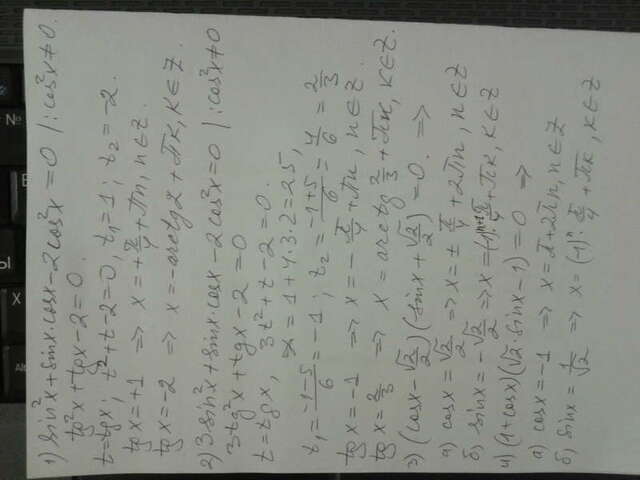 1) sin²x + sinx·cosx - 2cos²x = 0 |:cos²x≠0.
tg²x + tgx - 2 = 0.
t = tgx; t² + t - 2 = 0, t₁ = 1; t₂ = -2.
tgx = +1 => x = +π/4 + πn, n∈Z.
tgx = -2 => x = -arctg2 + πk, k∈Z.
2) 3sin²x + sinx·cosx - 2cos²x = 0 |:cos²x≠0
3tg²x + tgx - 2 = 0
t = tgx, 3t² + t - 2 = 0.
D = 1 + 4·3·2 = 25,
t₁ = (-1-5)/6 = -1; t₂ = (-1+5)/6 = 4/6 = 2/3
tgx = -1 => x = -π/4 + πn, n∈Z.
tgx = 2/3 => x = arctg 2/3 + πk, k∈Z.
3) (cosx - √2/2)(sinx + √2/2) = 0. =>
а) cosx = √2/2 => x = ± π/4 + 2πn, n∈Z
б) sinx = -√2/2 => x = (-1)ⁿ⁺¹ π/4 + πk, k∈Z
4) (1 + cosx)(√2·sinx - 1) = 0 =>
а) cosx = -1 => x = π + 2πn, n∈Z
б) sinx = 1/√2 => x = (-1)ⁿ·π/4 + πk, k∈Z
№
Ы
X
Alt